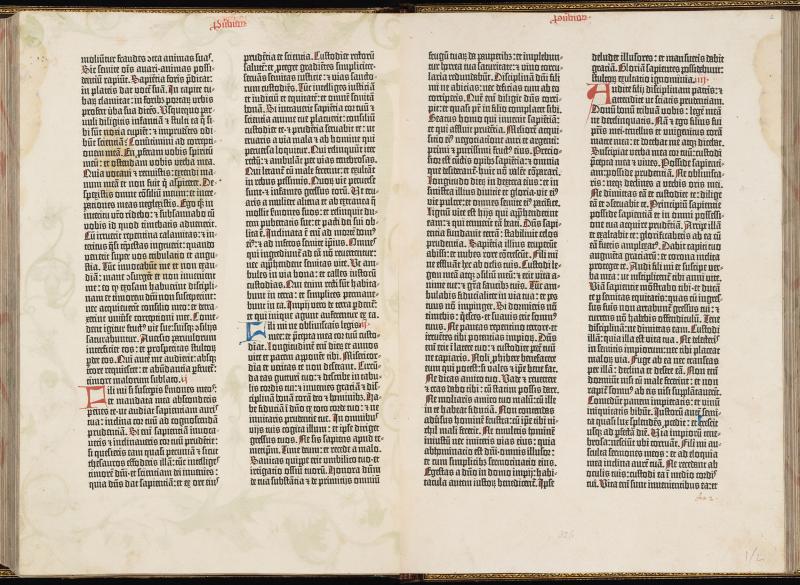 Proverbiorum
moliuntur fraudes contra animas suas.
Sic semite omnis avari animas possi-
dentium rapiunt. Sapientia foris predicat:
in plateis dat vocem suam. In capite tur-
barum clamitat: in foribus portarum urbis
profert verba sua dicens. Usquequo par-
vuli diligitis infantiam et stulti ea que si-
bi sunt noxia cupient: et imprudentes odi-
bunt scientiam: Convertimini ad correpti-
onem meam. En proferam vobis spiritum
meum: et ostendam vobis verba mea.
Quia vocavi et renuistis: extendi ma-
num meam et non fuit qui aspiceret. De-
spexistis omne consilium meum: et incre-
pationes meas neglexistis. Ego quoque in
interitu vestro ridebo: et subsannabo cum
vobis id quod timebatis advenerit.
Cum irruerit repentina calamitas: et in-
teritus quasi tempestas ingruerit: quando
venerit super vos tribulatio et angu-
stia. Tunc invocabunt me et non exau-
diam: mane consurgent et non invenient
me: eo quod exosam habuerint discipli-
nam et timorem domini non susceperint:
nec acquieverint consilio meo: et detra-
xerint universe correptioni mee. Comed-
ent igitur fructus vie sue: suisque consiliis
saturabuntur. Aversio parvulorum
interficiet eos: et prosperitas stultorum
perdet eos. Qui autem me audierit: absque
terrore requiescet: et abundantia perfruetur
timore malorum sublato. ii
Fili mi si susceperis sermones meos:
et mandata mea absconderis
penes te: ut audiat sapientiam auris
tua: inclina cor tuum ad cognoscendam
prudentiam. Si enim sapientiam invoca-
veris et inclinaveris cor tuum prudentie:
si quesieris eam quasi pecuniam et sicut
thesauros effoderis illam: tunc intelliges
timorem domini: et scientiam dei invenies:
quia dominus dat sapientiam: et ex ore eius
prudentia et scientia. Custodiet rectorum
salutem: et proteget gradientes simpliciter:
servans semitas iusticie: et vias sancto-
rum custodiens. Tunc intelliges iusticiam
et iudicium et equitatem: et omnem semitam
bonam. Si intraverit sapientia cor tuum et
scientia anime tue placuerit: consilium
custodiet te: et prudentia servabit te: ut
eruaris a via mala et ab homine qui
perversa loquitur. Qui relinquunt iter
rectum: et ambulant per vias tenebrosas.
Qui letantur cum male fecerint: et exultant
in rebus pessimis. Quorum vie perverse
sunt: et infames gressus eorum. Ut eru-
aris a muliere aliena et ab extranea que
mollit sermones suos: et relinquit du-
cem pubertatis sue: et pacti dei sui ob-
lita est. Inclinata est enim ad mortem domus
eius: et ad inferos semite ipsius. Omnes
qui ingrediuntur ad eam non revertentur:
nec apprehendent semitas vite. Ut am-
bules in via bona: et calles iustorum
custodias. Qui enim recti sunt habita-
bunt in terra: et simplices permane-
bunt in ea. Impii vero de terra perdentur:
et qui inique agunt auferentur ex ea. iii
Fili mi ne obliviscaris legis
mee: et precepta mea cor tuum custo-
diat. Longitudinem enim dierum et annos
vite et pacem apponent tibi. Misericor-
dia et veritas te non deserant. Circum-
da eas gutturi tuo: et describe in tabu-
lis cordis tui: et invenies gratiam et dis-
ciplinam bonam coram deo et hominibus. Ha-
be fiduciam in domino ex toto corde tuo: et ne
innitaris prudentie tue. In omnibus
viis tuis cogita illum: et ipse diriget
gressus tuos. Ne sis sapiens apud te-
metipsum. Time deum: et recede a malo.
Sanitas quippe erit umbilico tuo: et
irrigatio ossium tuorum. Honora dominum
de tua substantia: et de primitiis omnium
frugum tuarum da pauperibus: et implebun-
tur horrea tua saturitate: et vino torcu-
laria redundabunt. Disciplinam domini fili
mi ne abicias: nec deficias cum ab eo
corriperis. Quem enim diligit dominus corri-
pit: et quasi pater in filio complacet sibi.
Beatus homo qui invenit sapientiam:
et qui affluit prudentia. Melior est acqui-
sitio eius negociatione auri et argenti:
primi et purissimi fructus eius. Precio-
sior est cunctis opibus sapientia: et omnia
que desiderantur huic non valent comparari.
Longitudo dierum in dextera eius: et in
sinistra illius divitie et gloria. Vie eius
vie pulcre: et omnes semite eius pacifice.
Lignum vite est hiis qui apprehenderint
eam: et qui tenuerit eam beatus. Dominus sapi-
entia fundavit terram: stabilivit celos
prudentia. Sapientia illius eruperunt
abissi: et nubes rore concrescunt. Fili mi
ne effluant hec ab oculis tuis. Custodi le-
gem meam atque consilium meum: et erit vita a-
nime tue: et gratia faucibus tuis. Tunc am-
bulabis fiducialiter in via tua: et pes
tuus non impinget. Si dormieris non
timebis: quiesces et suavis erit somnus
tuus. Ne paveas repentino terrore: et
irruentes tibi potentias impiorum. Dominus
enim erit in latere tuo: et custodiet pedem tuum
ne capiaris. Noli prohibere benefacere
eum qui potest: si vales et ipse bene fac.
Ne dicas amico tuo. Vade et revertere
et cras dabo tibi: cum statim possis dare.
Ne moliaris amico tuo malum: cum ille
in te habeat fiduciam. Non contendas
adversus hominem frustra: cum ipse tibi ni-
chil mali fecerit. Ne emuleris hominem
iniustum nec imiteris vias eius: quia
abhominatio est domini omnis illusor:
et cum simplicibus sermocinatio eius.
Egestas a domino in domo impii: habi-
tacula autem iustorum benedicentur. Ipse
deludet illusores: et mansuetis dabit
gratiam. Gloriam sapientes possidebunt:
stultorum exaltatio ignominia. iiii
Audite filii disciplinam patris: et
attendite ut sciatis prudentiam.
Donum bonum tribuam vobis: legem meam
ne derelinquatis. Nam et ego filius fui
patris mei: tenellus et unigenitus coram
matre mea: et docebat me atque dicebat.
Suscipiat verba mea cor tuum: custodi
precepta mea et vives. Posside sapienti-
am: posside prudentiam. Ne obliviscaris:
neque declines a verbis oris mei.
Ne dimittas eam et custodiet te: dilige
eam et conservabit te. Principium sapientie
posside sapientiam et in omni possessi-
one tua acquire prudentiam. Arripe illam
et exaltabit te: glorificaberis ab ea cum
eam fueris amplexatus. Dabit capiti tuo
augmenta gratiarum: et corona inclita
proteget te. Audi fili mi et suscipe ver-
ba mea: ut multiplicentur tibi anni vite.
Viam sapientie monstrabo tibi: et ducam
te per semitas equitatis: quas cum ingres-
sus fueris non artabuntur gressus tui: et
currens non habebis offendiculum. Tene
disciplinam: ne dimittas eam. Custodi
illam: quia illa est vita tua. Ne delecteris
in semitis impiorum: nec tibi placeat
malorum via. Fuge ab ea: nec transeas
per illam: declina et desere eam. Non enim
dormiunt nisi cum male fecerint: et non
rapitur somnus ab eis nisi supplantaverint.
Comedunt panem impietatis: et vinum
iniquitatis bibunt. Iustorum autem semi-
ta quasi lux splendens procedit: et crescit
usque ad perfectam diem. Via impiorum tene-
brosa: nesciunt ubi corruant. Fili mi au-
sculta sermones meos: et ad eloquia
mea inclina aurem tuam. Ne recedant ab
oculis tuis: custodi ea in medio cordis
tui. Vita enim sunt invenientibus ea: et
1/2